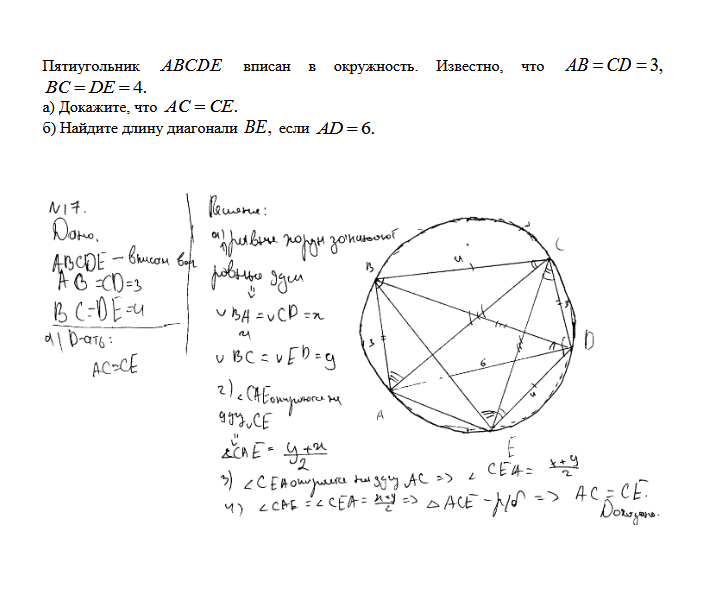 Пятиугольник ABCDE вписан в окружность. Известно, что AB = CD = 3,
BC = DE = 4.
а) Докажите, что AC = CE.
б) Найдите длину диагонали BE, если AD = 6.
N17.
Дано:
ABCDE – вписан в окр
AB = CD = 3
BC = DE = 4
а) Д-ать:
AC = CE
Решение:
а) 1) равные хорды
равные дуги
⇓
∪BA = ∪CD = x
и
∪BC = ∪ED = y
2) ∠CAE опирается на
дугу CE
⇓
∠CAE = (y+x)/2
3) ∠CEA опирается на дугу AC => ∠CEA = (x+y)/2
4) ∠CAE = ∠CEA = (x+y)/2 => △ACE – р/б => AC = CE.
Доказано.
B
C
D
E
A
4
3
3
6
4